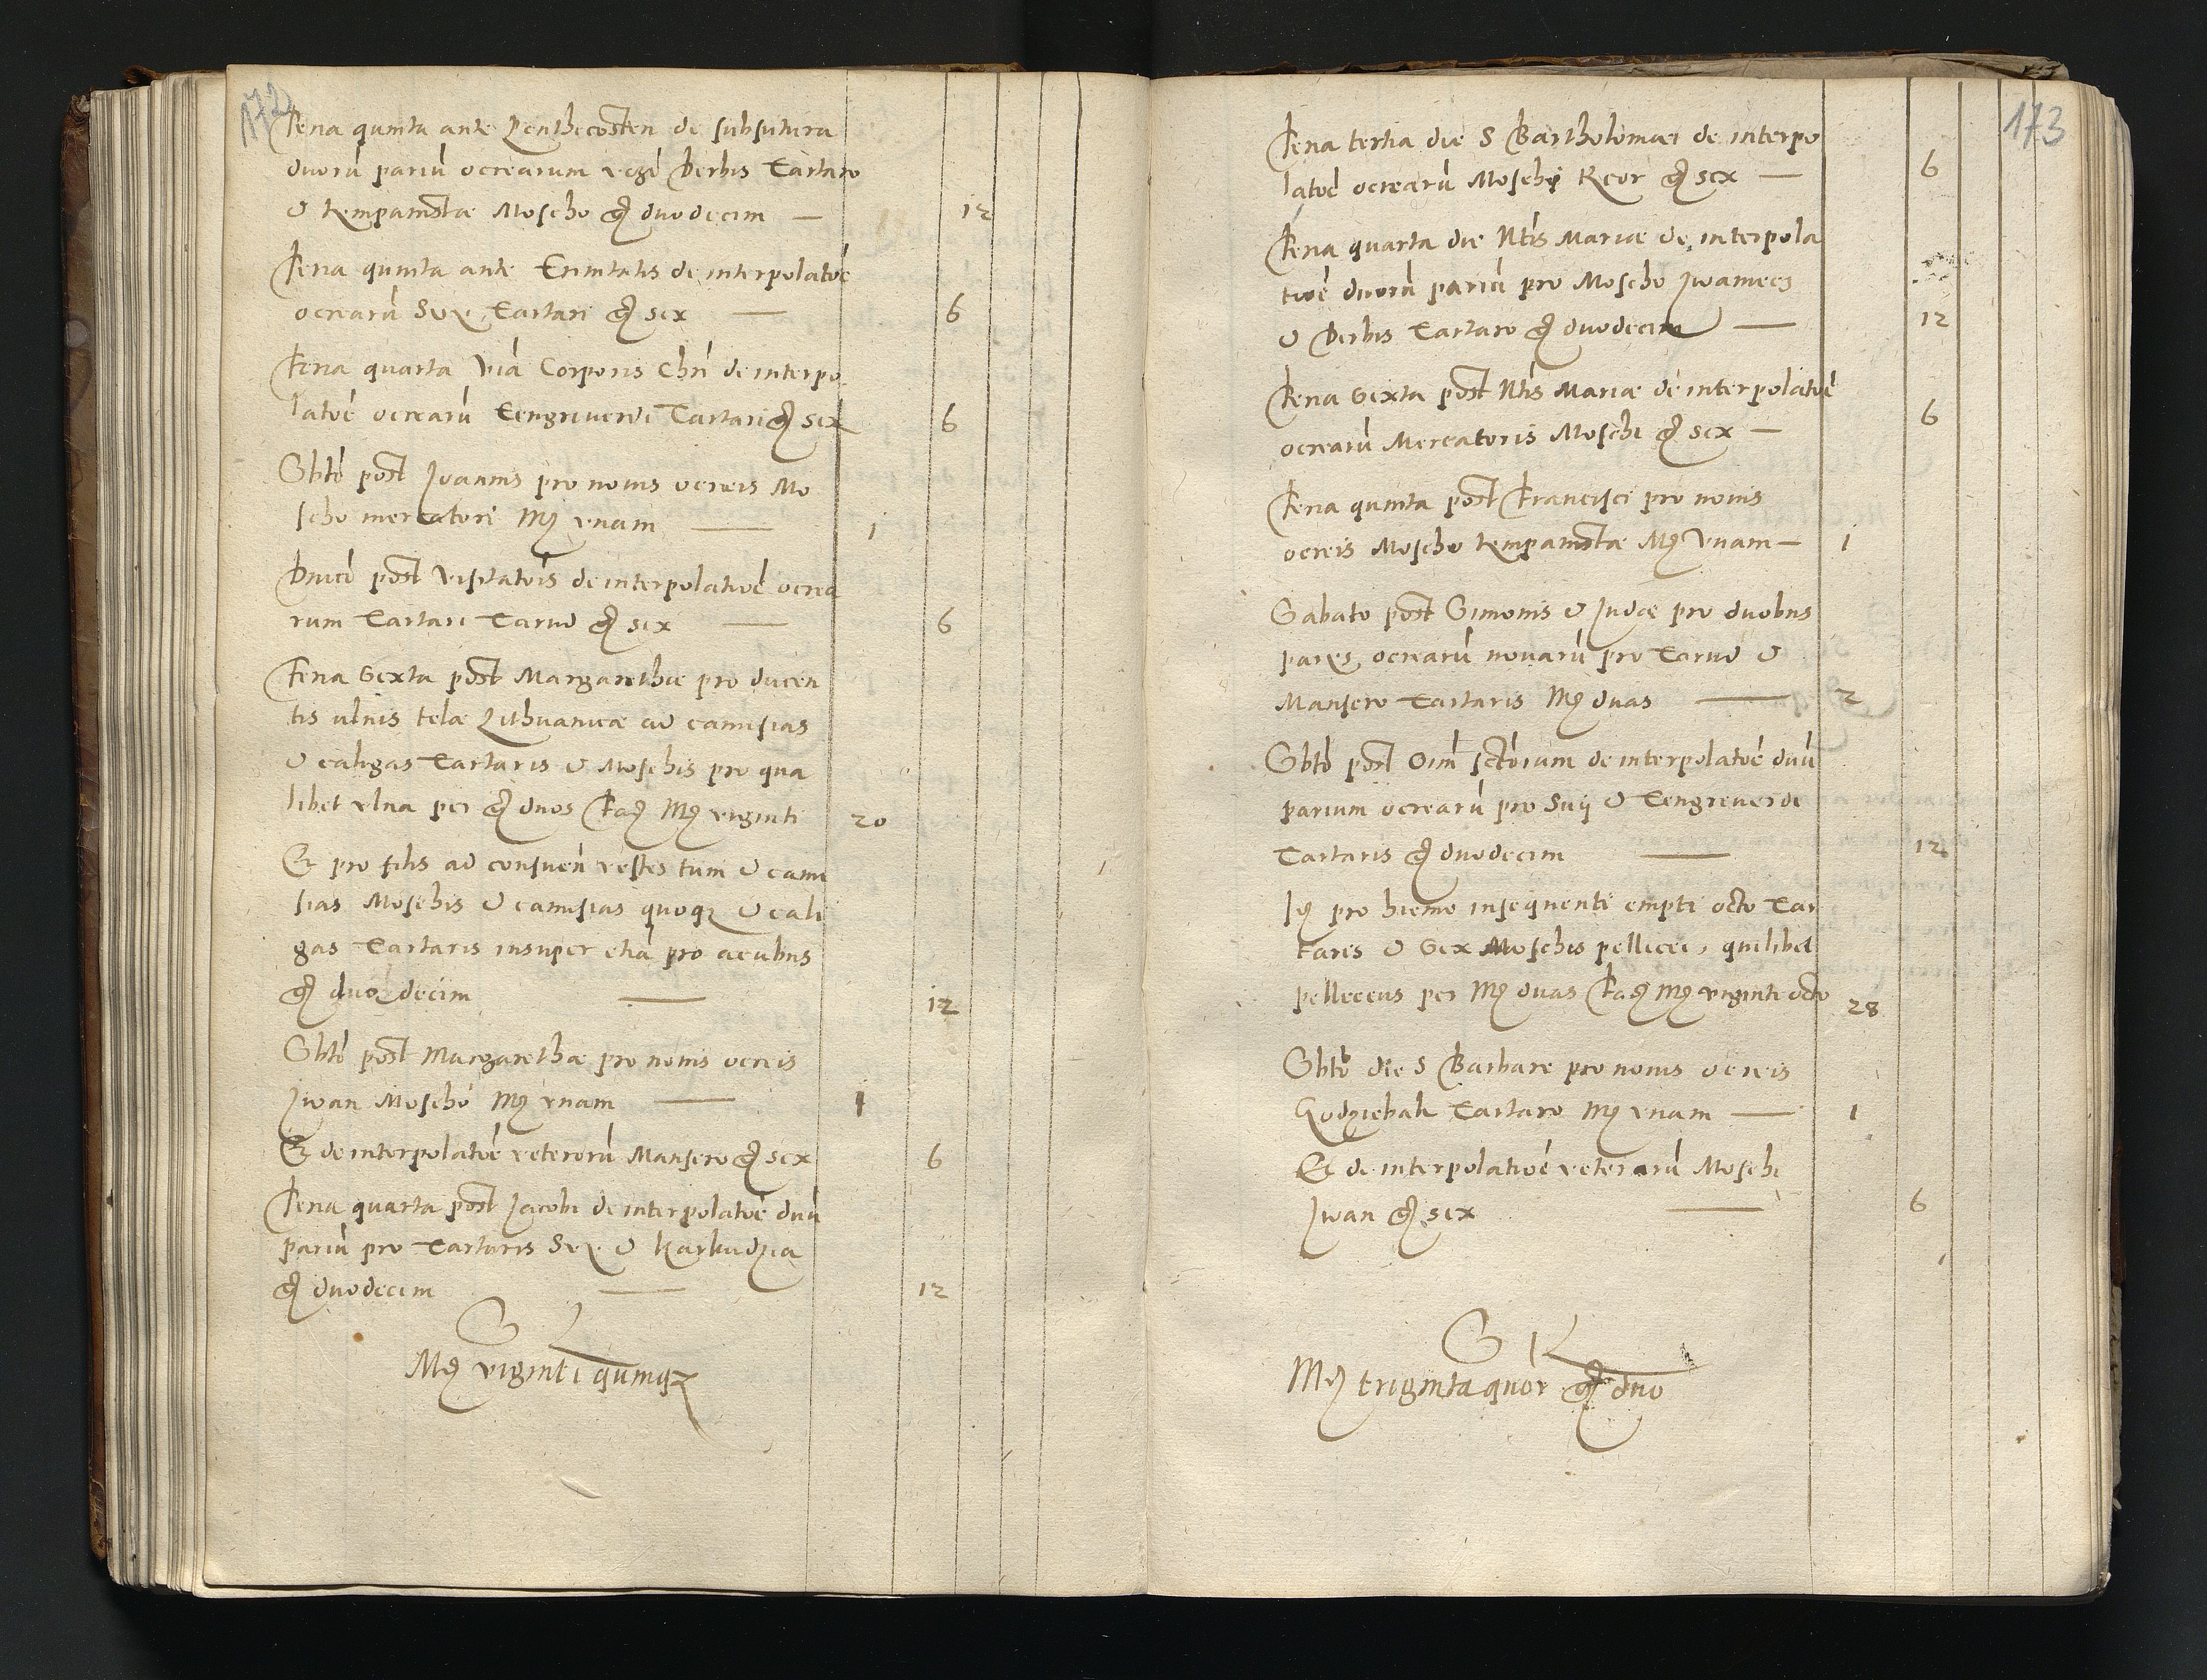 172
Feria quinta ante Penthecosten de subsutura
duorū pariū ocrearum Derbis Tartaro
& Moscho gͬ duodecim — 12
Feria quinta ante Trinitatis de interpolatōe
ocrearū Tartari gͬ sex — 6
Feria quarta Via Corporis Chri de interpo
latōe ocrearū Tengriuerdi Tartari gͬ sex 6
Sbto post Joannis pro nouis ocreis Mo
scho mercatori Mͬ vnam — 1
Dnico post Visitatois de interpolatioē ocrea
rum Tartari gͬ sex — 6
Feria Sexta post Margarethae pro ducen
tis vlnis telae Lithuanicae ad camisias
& caligas Tartaris & Moschis pro qua
libet vlna per gͬ duos Facͭ Mͬ viginti 20
Et pro filis ad consuen vestes tum & cami
sias Moschis & camisias quoqꝫ & cali
gas Tartaris insuper etiā pro acubus
gͬ duodecim — 12
Sbto post Margarethae pro nouis ocreis
Jwan Moscho Mͬ vnam — 1
Et de interpolatōe veterorū Mansero gͬ sex 6
Feria quarta post Jacobi de interpolatōe duū
pariū pro Tartaris & Karkudzia
gͬ duodecim — 12
S
Mͬ viginti quinqꝫ
173
Feria tertia die S Bartholomaei de interpo
latōe ocrearū Moschi gͬ sex — 6
Feria quarta die Ntis Mariae de interpola
tioē duorū pariū pro Moscho
& Derbis Tartaro gͬ duodecim — 12
Feria Sexta post Ntis Mariae de interpolatōe
ocrearū Mercatoris Moschi gͬ sex — 6
Feria quinta post Francisci pro nouis
ocreis Moscho Mͬ Vnam — 1
Sabato post Simonis & Judae pro duobus
ocrearū nouarū pro &
Mansero Tartaris Mͬ duas — 2
Sbto post Oīm sctorum de interpolatōe duū
parium ocrearū pro & Tengreuerdi
Tartaris gͬ duodecim — 12
pro hieme insequenti empti octo Tar
taris & Sex Moschis pellicei, quilibet
pelleceus per Mͬ duas Facͭ Mͬ viginti octo 28
Sbto die S Barbare pro nouis ocreis
Tartaro Mͬ vnam — 1
Et de interpolatioē veterarū Moschi
Jwan gͬ sex — 6
S
Mͬ triginta quor gͬ duo